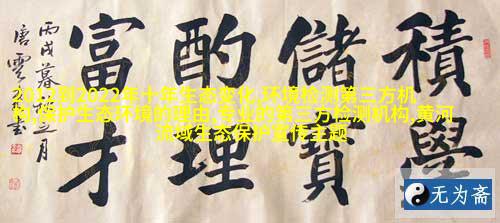 積學
儲寶
酌理
富才
2012到2022年十年生态变化,环境检测第三方机
构,保护生态环境的理由,专业的第三方检测机构,黄河
流域生态保护宣传主题
丙戌暮之月
唐雲
无为斋